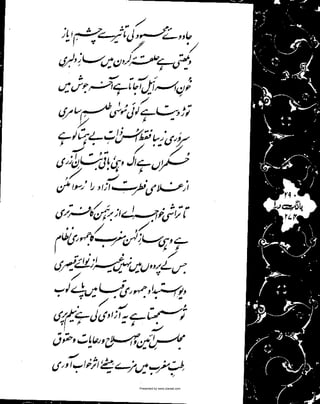 جادوئے محمود کی تاثیر سے چشمِ ایاز
دیکھتی ہے حلقۂ گردن میں سازِ دلبری
خونِ اسرائیل آجاتا ہے آخر جوش میں
توڑ دیتا ہے کوئی موسیٰ طلسمِ سامری
سروری زیبا فقط اس ذاتِ بے ہمتا کو ہے
حکمراں ہے اک وہی، باقی بتانِ آزری
از غلامی فطرتِ آزاد را رسوا مکن
تا تراشی خواجۂ از برہمن کافر تری
ہے وہی سازِ کہن مغرب کا جمہوری نظام
جس کے پردوں میں نہیں غیر از نوائے قیصری
دیوِ استبداد جمہوری قبا میں پائے کوب
تو سمجھتا ہے یہ آزادی کی ہے نیلم پری
مجلسِ آئین و اصلاح و رعایات و حقوق
طبِ مغرب میں مزے میٹھے، اثر خواب آوری
۲۹۰
بانگِ درا
۲۷۴
Presented by www.ziaraat.com